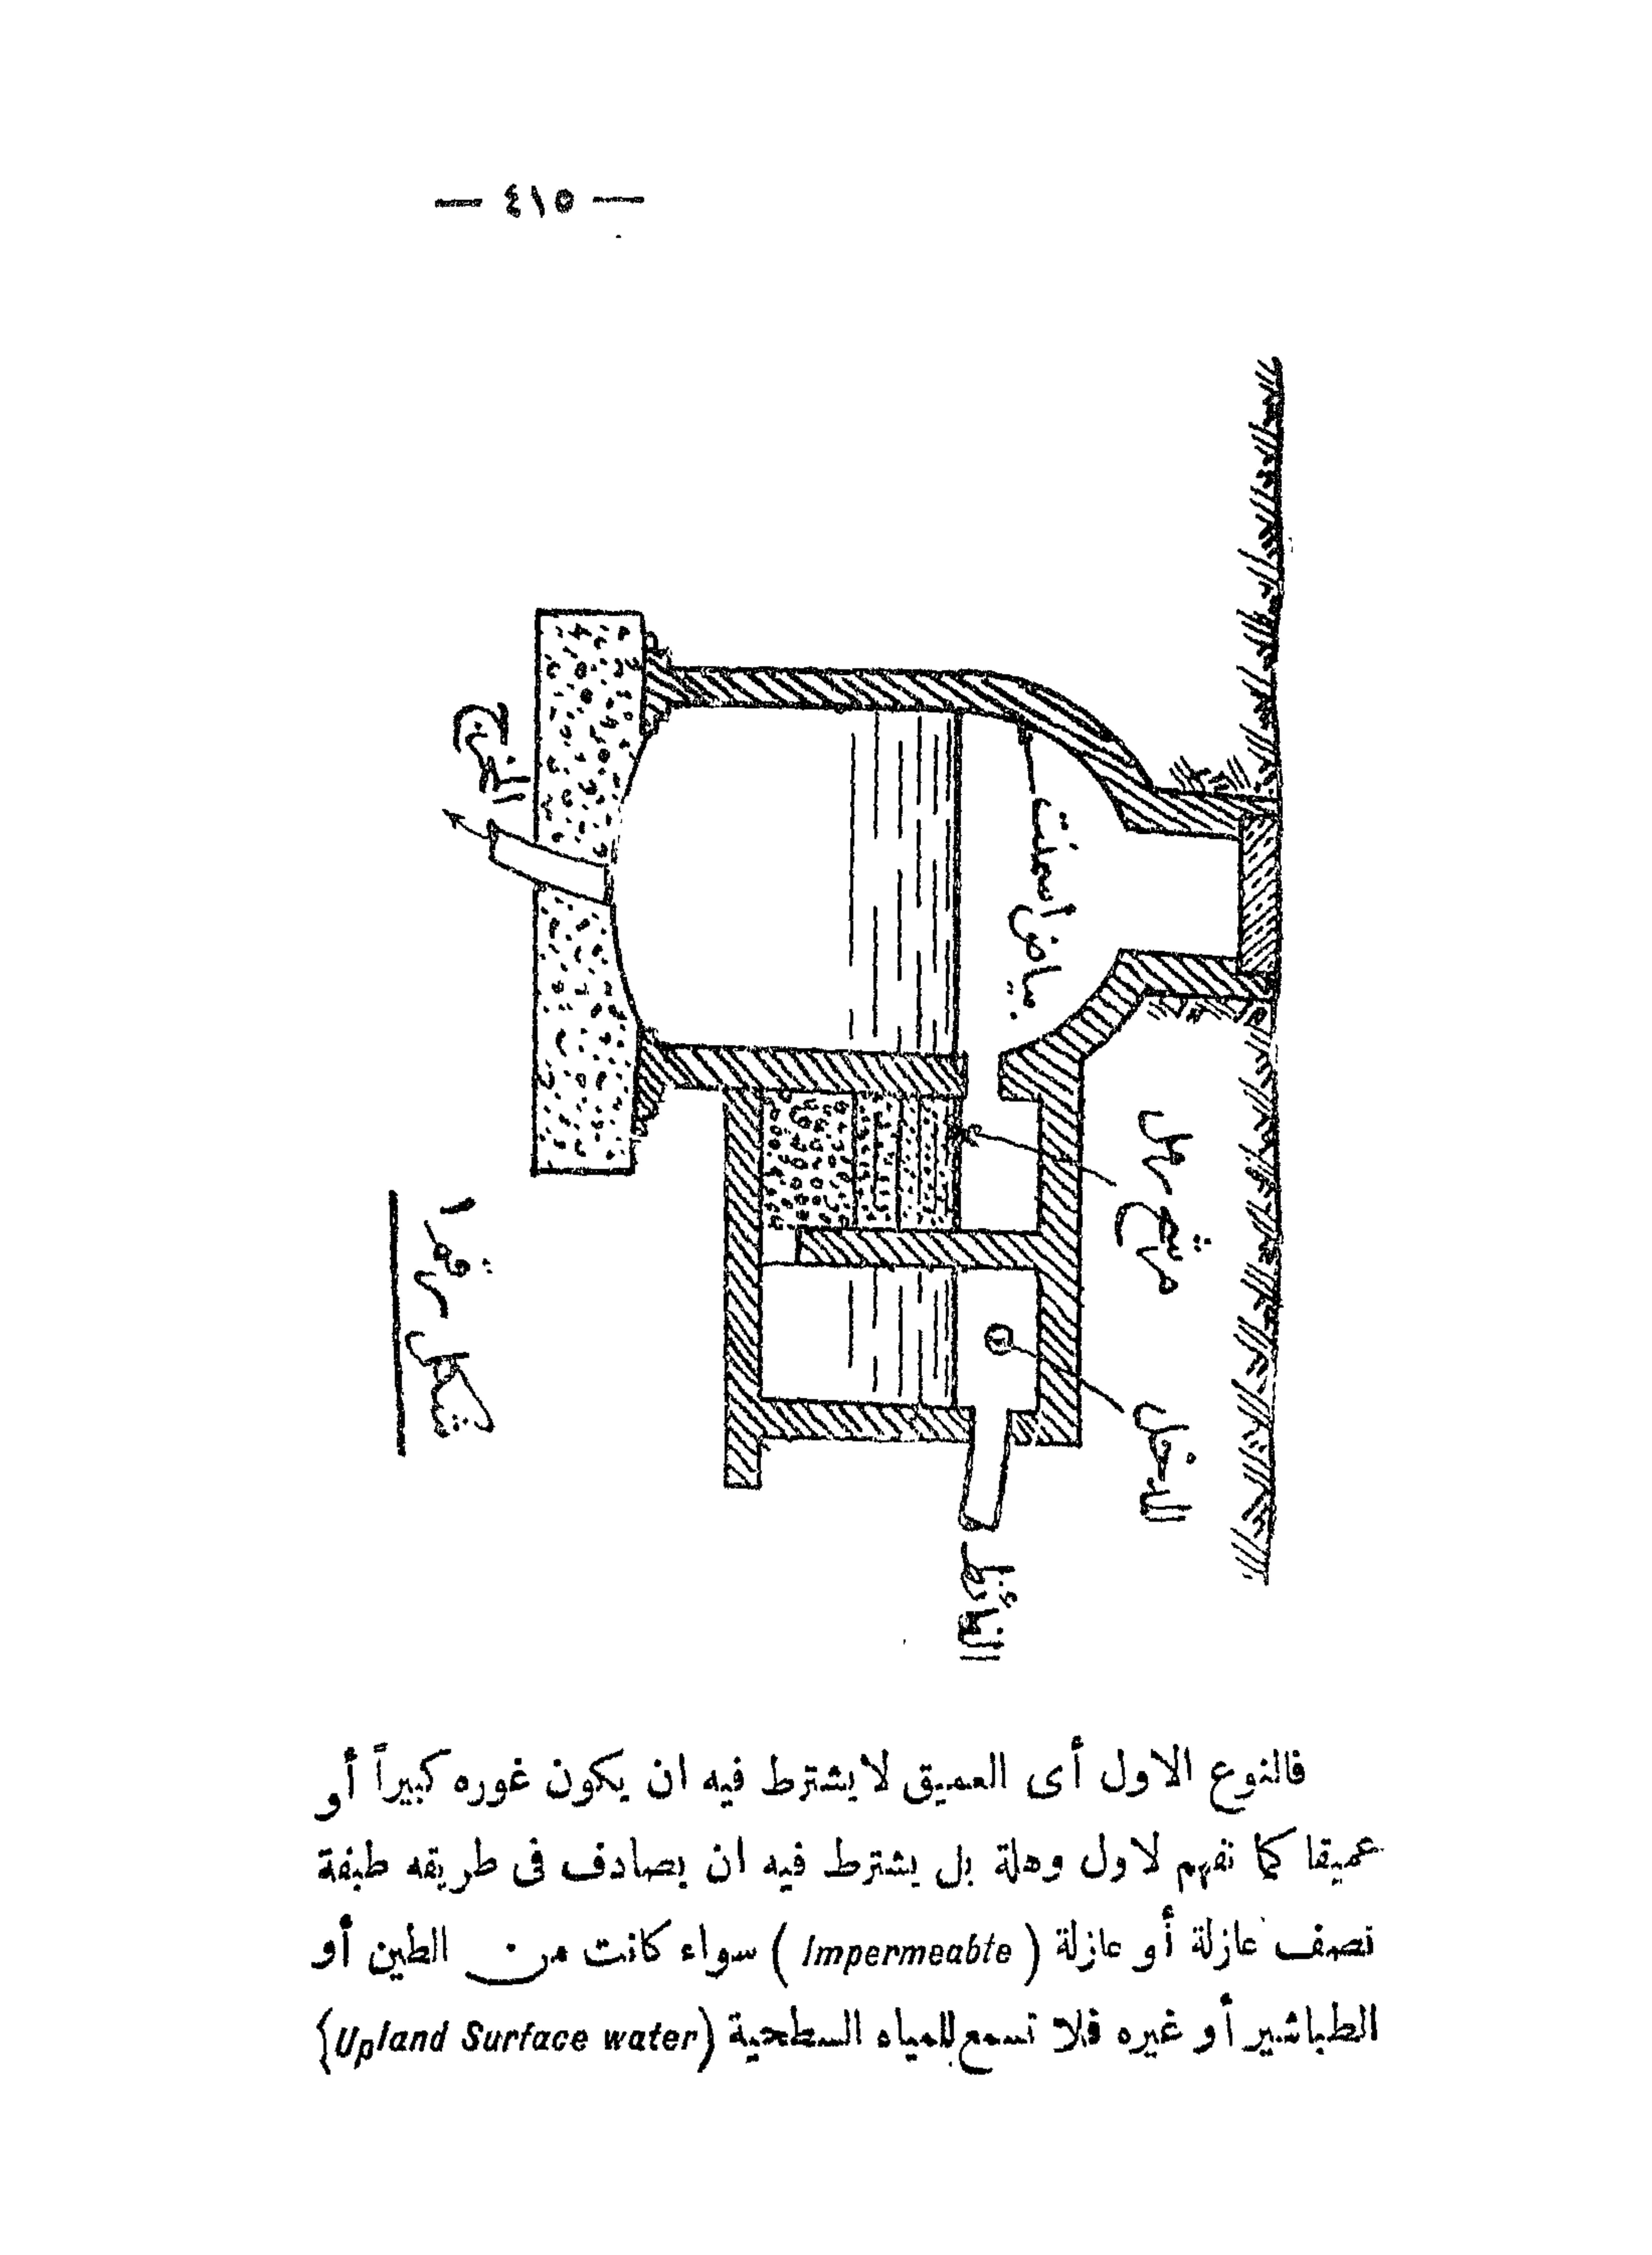 — ٤١٥ —
المخرج
بياض أسمنت
مرشح رمل
المدخل
الفائظ
شكل رقم ١
فالنوع الاول أى العميق لا يشترط فيه ان يكون غوره كبيراً أو
عميقا كما نفهم لاول وهلة بل يشترط فيه ان يصادف فى طريقه طبقة
نصف عازلة أو عازلة ( Impermeabte ) سواء كانت من الطين أو
الطباشير أو غيره فلا تسمح للمياه السطحية (Upland Surface water}